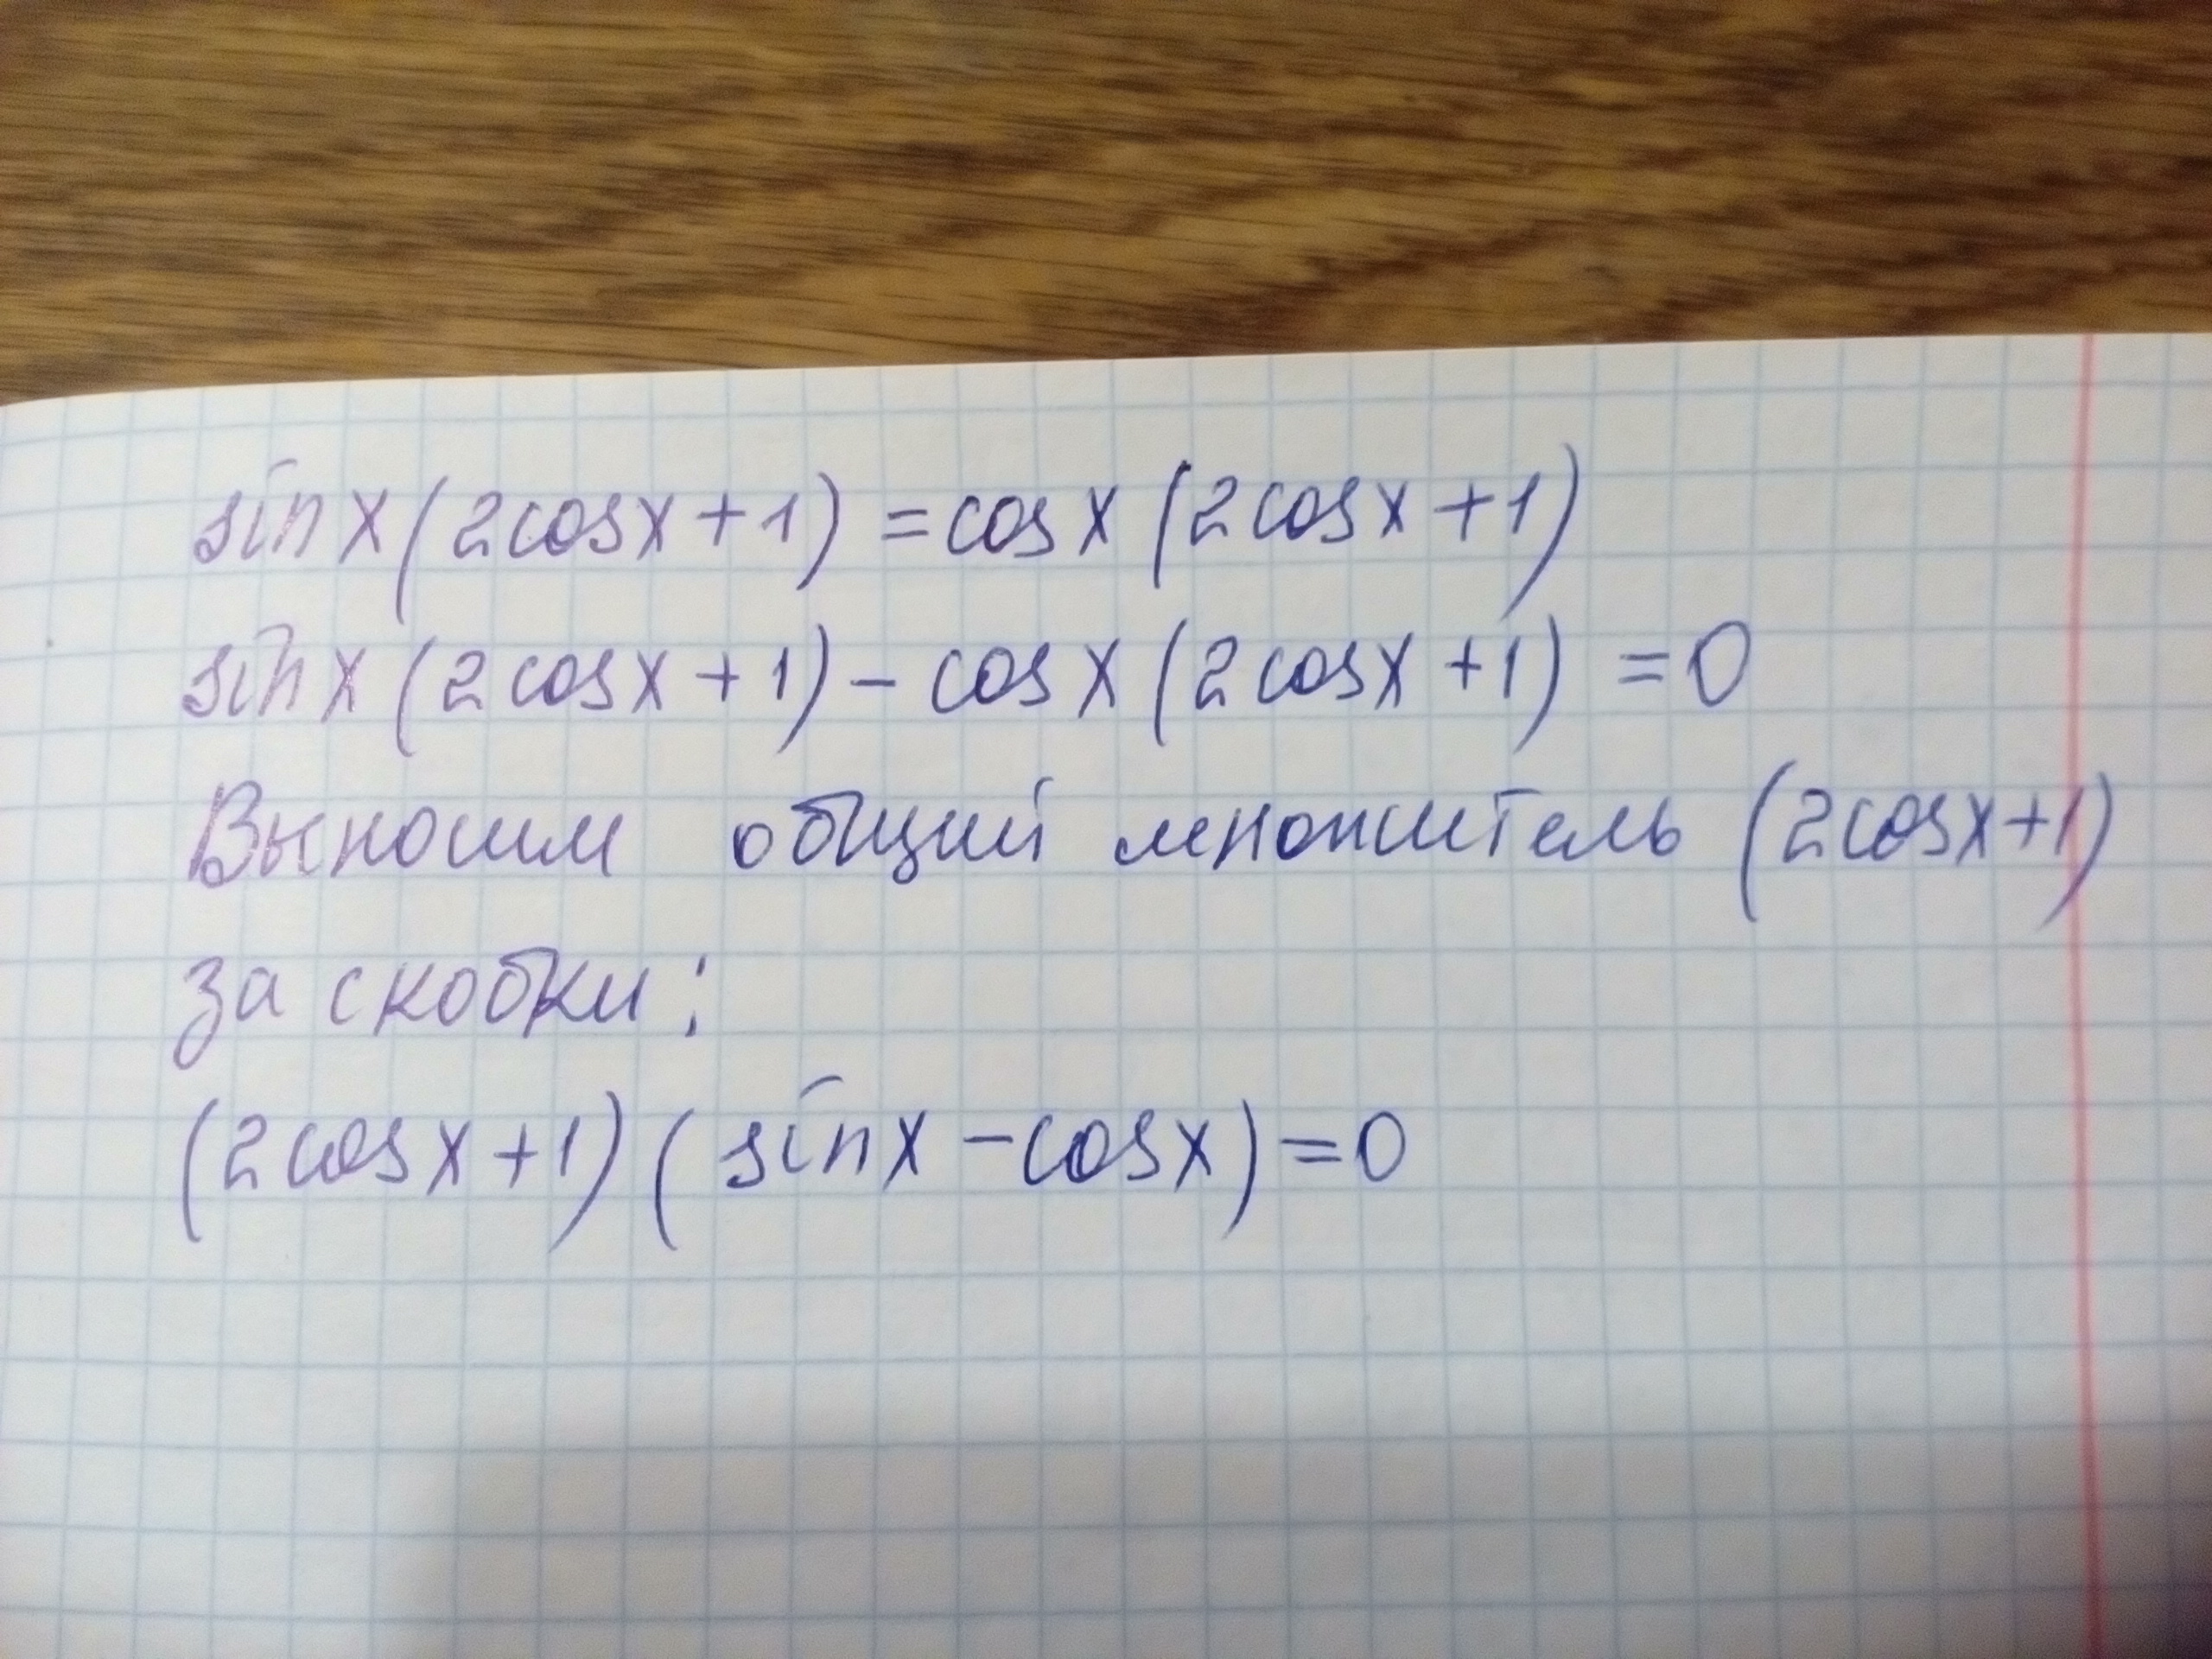 sin x (2cosx + 1) = cos x (2cosx + 1)
sin x (2cosx + 1) - cos x (2cosx + 1) = 0
Выносим общий множитель (2cosx+1)
за скобки:
(2cosx + 1) ( sinx - cosx) = 0